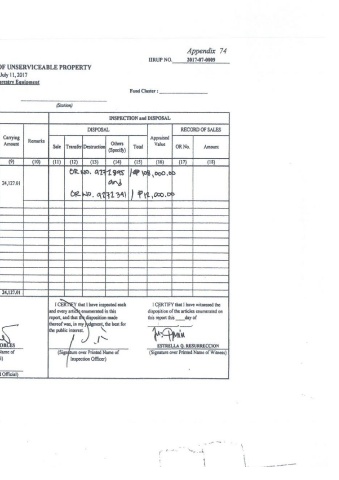 Appendix 74
IIRUP NO. 2017-07-0009
OF UNSERVICEABLE PROPERTY
July 11, 2017
Fund Cluster :
(Station)
INSPECTION and DISPOSAL
DISPOSAL RECORD OF SALES
Carrying Amount Remarks Sale Transfer Destruction Others (Specify) Total Appraised Value OR No. Amount
(9) (10) (11) (12) (13) (14) (15) (16) (17) (18)
OR NO. 9271895 / ₱ 108,000.00
24,127.01 and
OR NO. 9271341 / ₱ 12,000.00
24,127.01
I CERTIFY that I have inspected each
and every article enumerated in this
report, and that the disposition made
thereof was, in my judgment, the best for
the public interest.
I CERTIFY that I have witnessed the
disposition of the articles enumerated on
this report this ____ day of
ESTRELLA Q. RESURRECCION
(Signature over Printed Name of
Inspection Officer)
(Signature over Printed Name of Witness)
Name of
d Official)